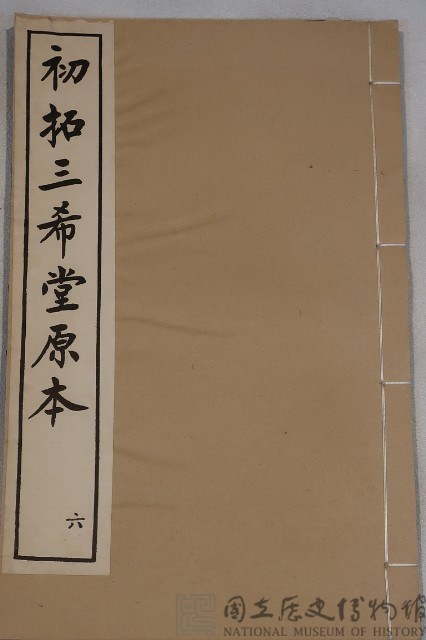 初拓三希堂原本
六
國立歷史博物館
NATIONAL MUSEUM OF HISTORY